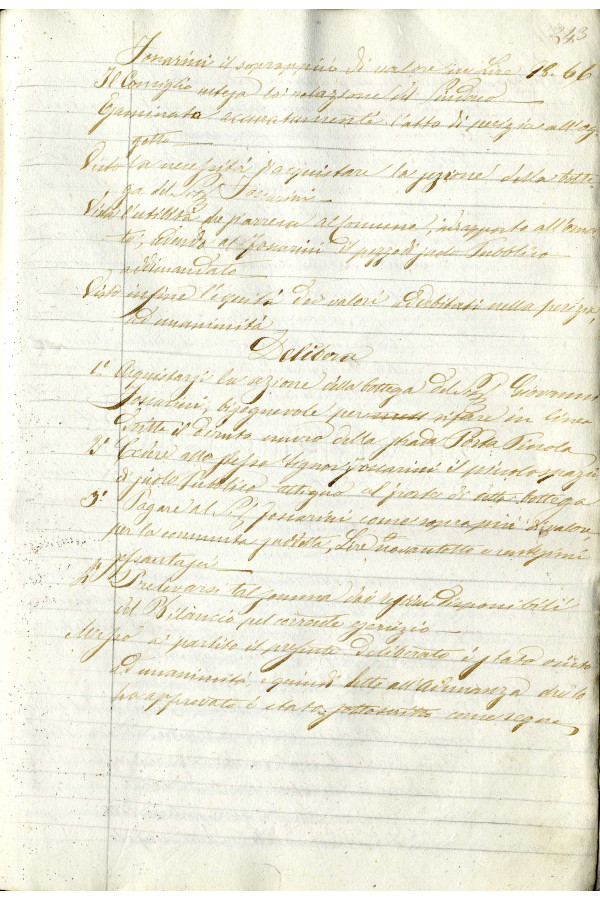 243
Foscarini il soprappiù di valore in Lire 98.66
Il Consiglio intesa la relazione del Sindaco
Esaminato accuratamente l'atto di perizia all'og
getto
Vista la necessità d'acquistare la sezione della botte
ga del Sig Foscarini
Vista l'utilità che parrera al Comune,
to, cedendo al Foscarini il pezzo di suolo Pubblico
addimandato
Visto infine l'equità dei valori attribuiti nella perizia,
ad unanimità
Delibera
1° Acquistarsi la sezione della bottega del Sig Giovanni
Foscarini, bisognevole per rifare in linea
dritta il diruto muro della strada Porta
2° Cedere allo stesso Signor Foscarini il piccolo spazio
di suolo Pubblico attiguo al posto di detta bottega
3° Pagare al Sig Foscarini come sopra più di valore
per la commuta suddetta, Lire novantotto e centesimi
sessantasei
4° Prelevarsi tal somma dai disponibili
del Bilancio pel corrente esercizio
Messo a partito il presente deliberato è stato
ad unanimità, e quindi letto all'Adunanza che lo
ha approvato è stato sottoscritto come segue